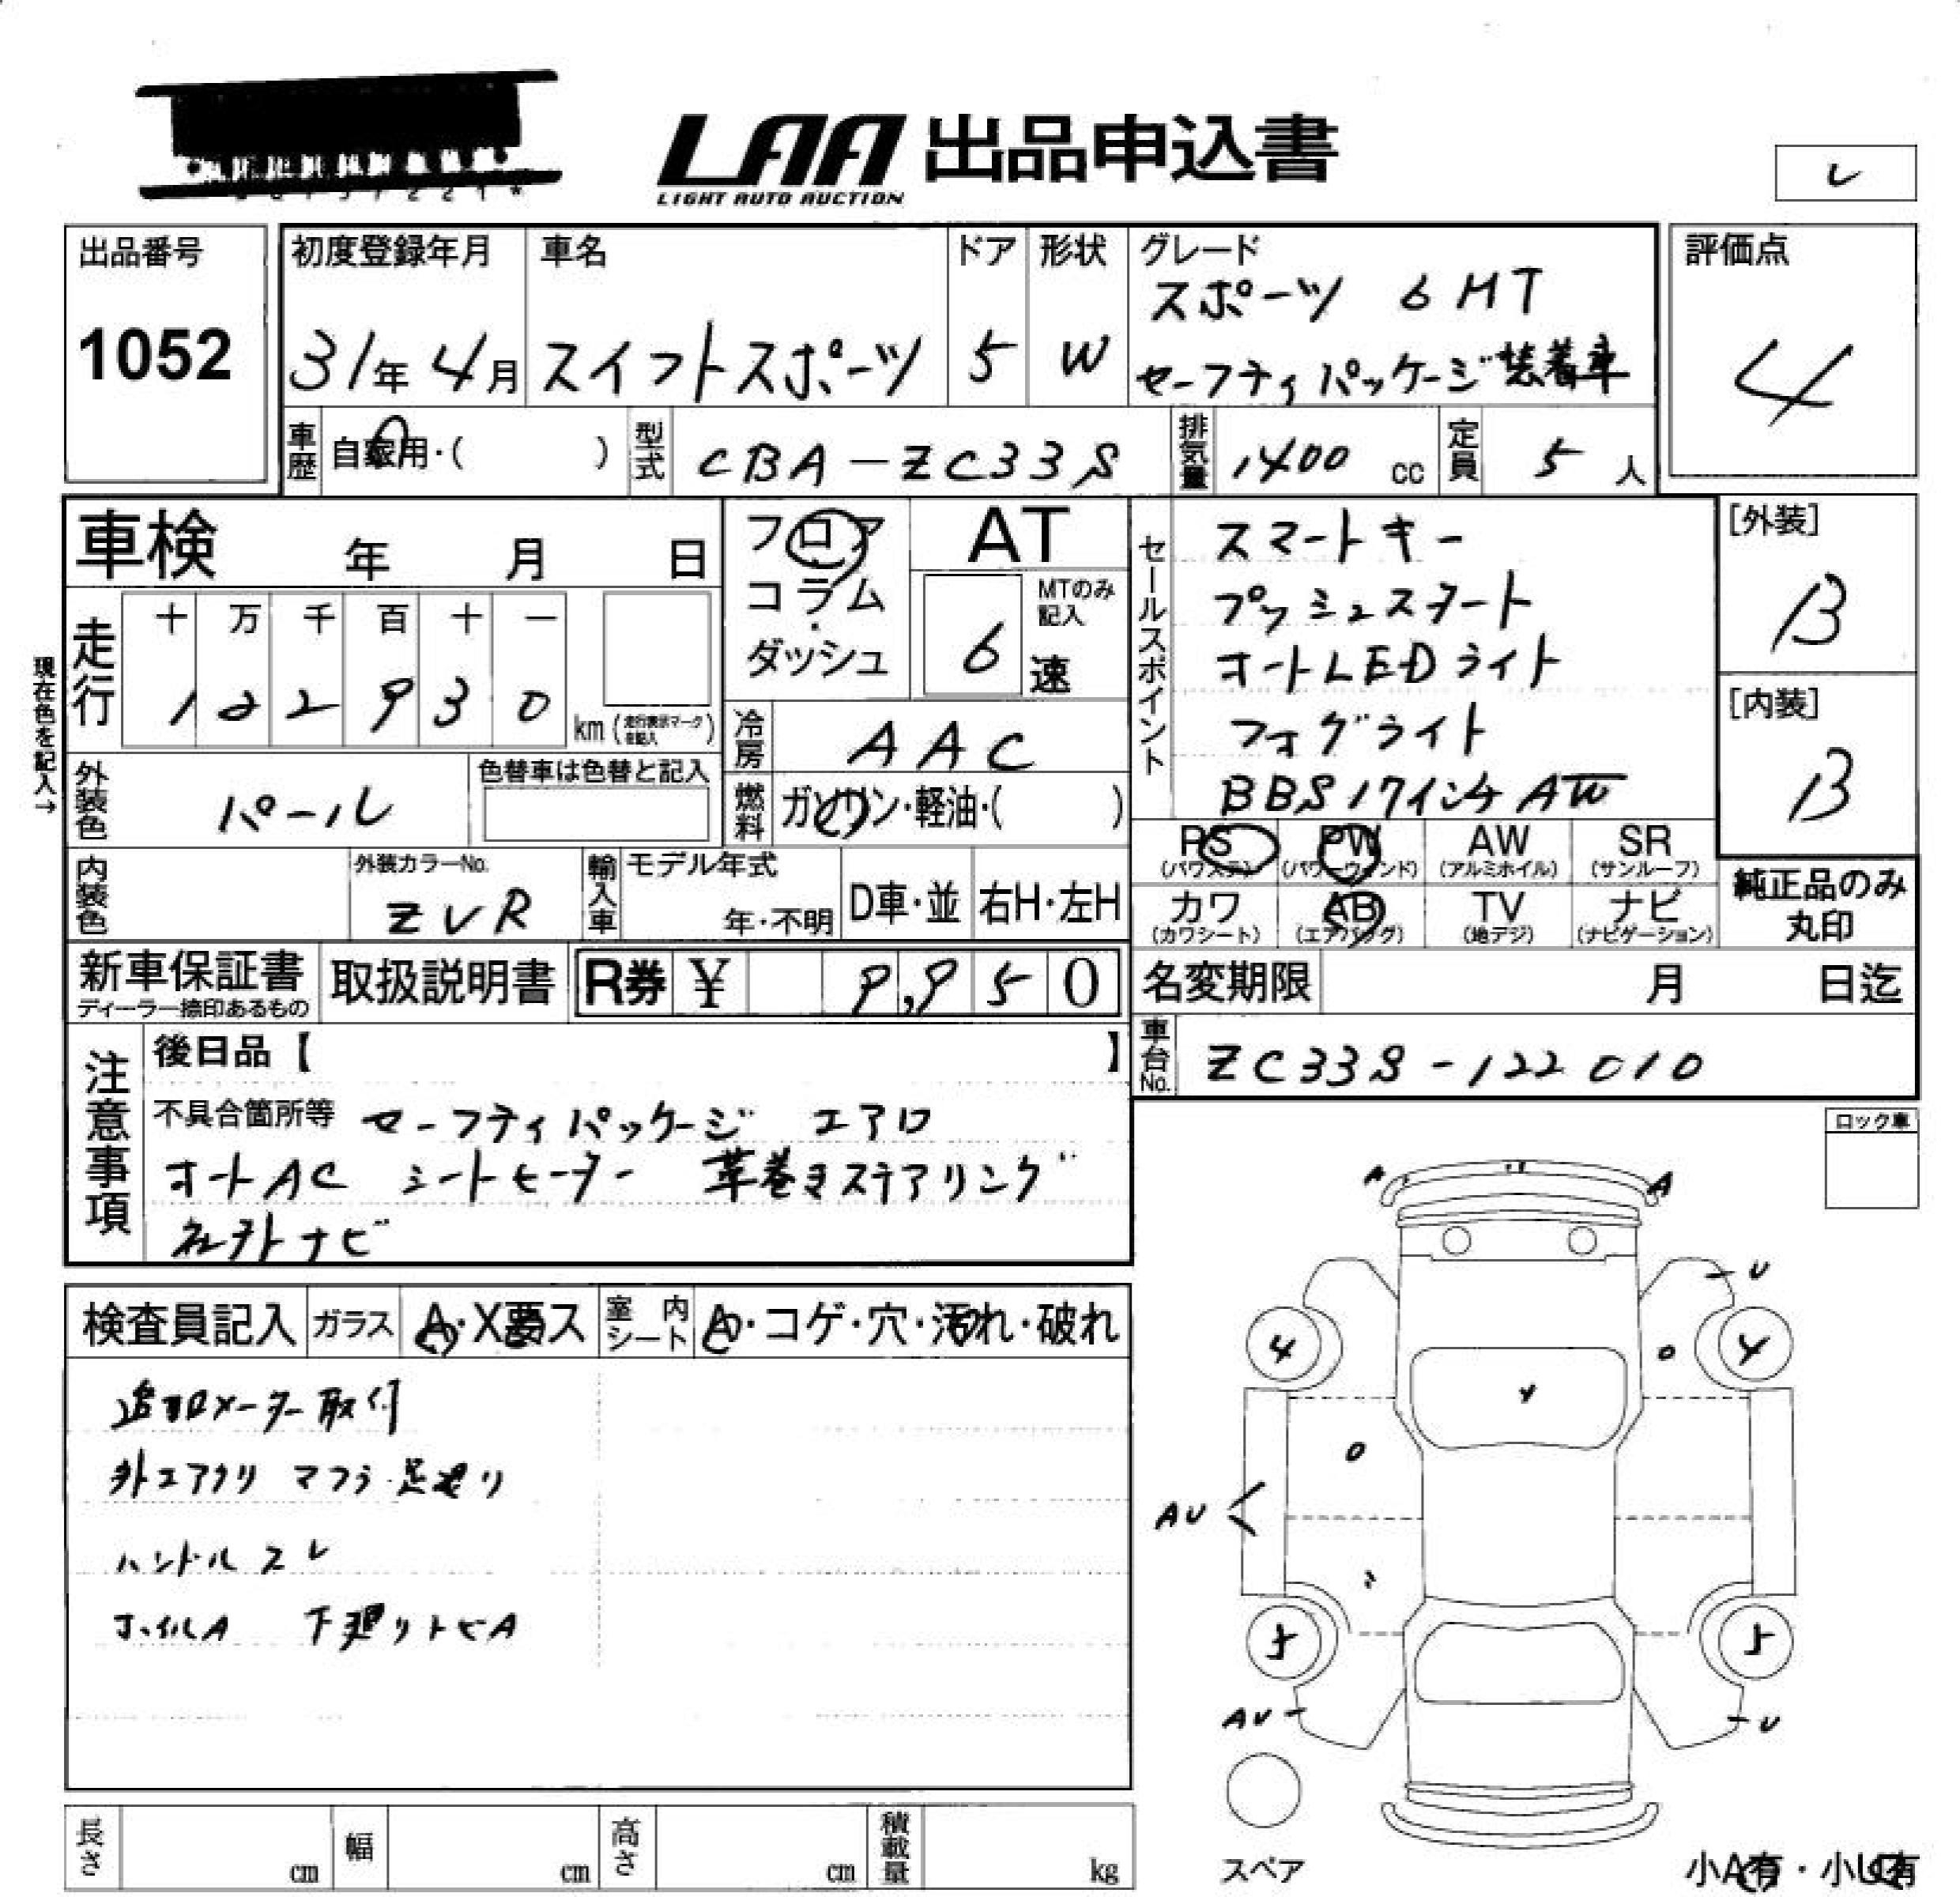 LAA 出品申込書
LIGHT AUTO AUCTION
レ
出品番号
1052
初度登録年月
31年 4月
車名
スイフトスポーツ
ドア
5
形状
W
グレード
スポーツ 6MT
セーフティパッケージ装着車
評価点
4
車歴
自家用・( )
型式
CBA-ZC33S
排気量
1400 cc
定員
5 人
車検 年 月 日
フロア
コラム
ダッシュ
AT
MTのみ記入
6 速
セールスポイント
スマートキー
プッシュスタート
オートLEDライト
フォグライト
BBS17インチAW
[外装]
B
[内装]
B
現在色を記入→
走行
十 万 千 百 十 一
1 2 2 9 3 0
km (走行表示マークを記入)
冷房
AAC
外装色
パール
色替車は色替と記入
燃料
ガソリン・軽油・( )
PS (パワステ)
PW (パワーウィンド)
AW (アルミホイル)
SR (サンルーフ)
カワ (カワシート)
AB (エアバッグ)
TV (地デジ)
ナビ (ナビゲーション)
純正品のみ
丸印
内装色
外装カラーNo.
ZVR
輸入車
モデル年式
年・不明
D車・並
右H・左H
新車保証書
ディーラー捺印あるもの
取扱説明書
R券 ¥ 9,950
名変期限 月 日迄
車台No.
ZC33S-122010
注意事項
後日品【 】
不具合箇所等 セーフティパッケージ エアロ
オートAC シートヒーター 革巻きステアリング
社外ナビ
ロック車
検査員記入
ガラス
A・X要ス
室内シート
A・コゲ・穴・汚れ・破れ
追加メーター取付
外エアクリ マフラ 足廻り
ハンドルスレ
ホイルA 下廻りトビA
A
A
U
4
4
AU
5
5
AU
U
スペア
小A有・小U有
長さ cm
幅 cm
高さ cm
積載量 kg